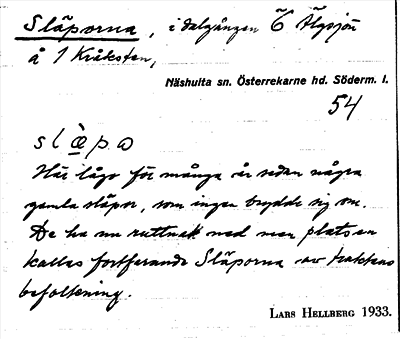 Släporna, i dalgången Ö Älgsjön
å 1 Kråksten,
Näshulta sn. Österrekarne hd. Söderm. l.
54
slæ̀pω
Här lågo för många år sedan några
gamla släpor, som ingen brydde sig om.
De ha nu ruttnat ned men platsen
kallas fortfarande Släporna av traktens
befolkning.
Lars Hellberg 1933.